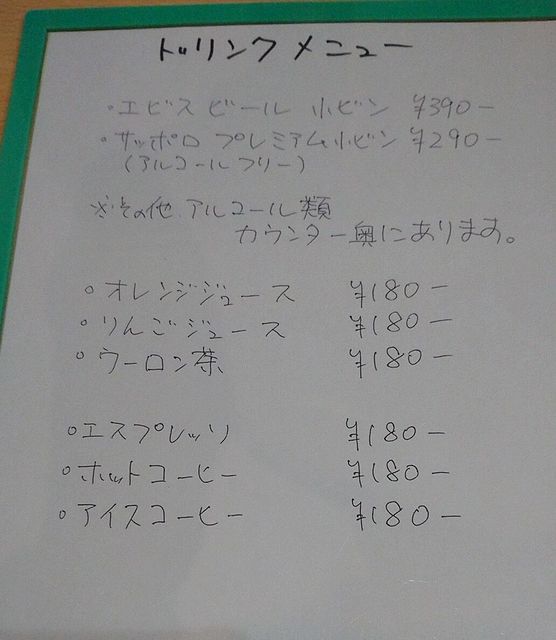 ドリンクメニュー
・エビスビール 小ビン ¥390-
・サッポロ プレミアム小ビン ¥290-
(アルコールフリー)
※その他、アルコール類
カウンター奥にあります。
○オレンジジュース ¥180-
○りんごジュース ¥180-
○ウーロン茶 ¥180-
○エスプレッソ ¥180-
○ホットコーヒー ¥180-
○アイスコーヒー ¥180-